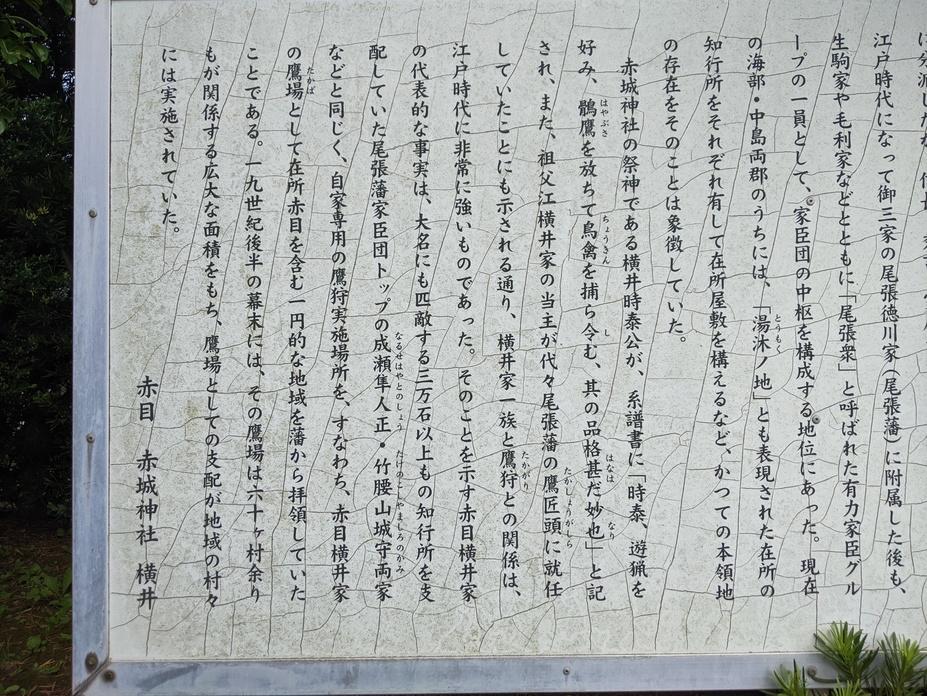 江戸時代になって御三家の尾張徳川家(尾張藩)に附属した後も、
生駒家や毛利家などとともに「尾張衆」と呼ばれた有力家臣グル
ープの一員として、家臣団の中枢を構成する地位にあった。現在
の海部・中島両郡のうちには、「湯沐ノ地」とも表現された在所の
とうもく
知行所をそれぞれ有して在所屋敷を構えるなど、かつての本領地
の存在をそのことは象徴していた。
赤城神社の祭神である横井時泰公が、系譜書に「時泰、遊猟を
好み、鶻鷹を放ちて鳥禽を捕ら令む、其の品格甚だ妙也」と記
はやぶさ ちょうきん し はなは なり
され、また、祖父江横井家の当主が代々尾張藩の鷹匠頭に就任
たかしょうがしら
していたことにも示される通り、横井家一族と鷹狩との関係は、
たかがり
江戸時代に非常に強いものであった。そのことを示す赤目横井家
の代表的な事実は、大名にも匹敵する三万石以上もの知行所を支
配していた尾張藩家臣団トップの成瀬隼人正・竹腰山城守両家
なるせはやとのしょう たけのこしやましろのかみ
などと同じく、自家専用の鷹狩実施場所を、すなわち、赤目横井家
の鷹場として在所赤目を含む一円的な地域を藩から拝領していた
たかば
ことである。一九世紀後半の幕末には、その鷹場は六十ヶ村余り
もが関係する広大な面積をもち、鷹場としての支配が地域の村々
には実施されていた。
赤目 赤城神社 横井